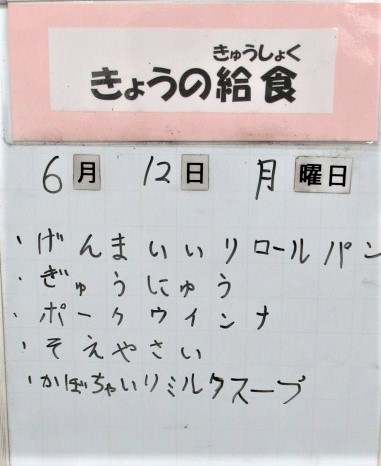 きゅうしょく
きょうの給食
6月 12日 月曜日
・げんまいいりロールパン
・ぎゅうにゅう
・ポークウインナ
・そえやさい
・かぼちゃいりミルクスープ